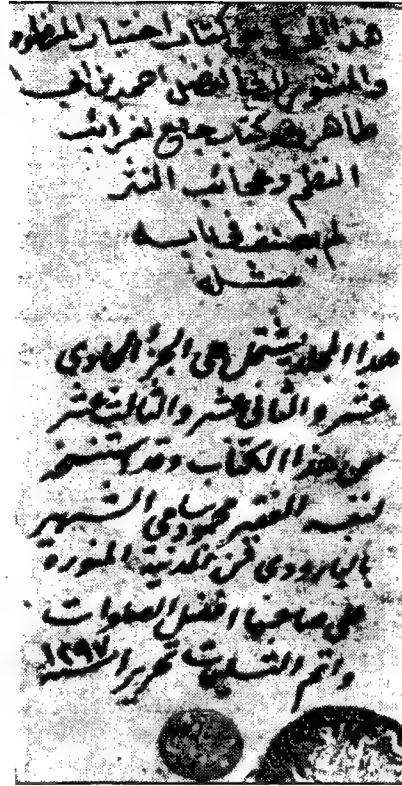 هذا المجلد من كتاب اختيار المنظوم
والمنثور لابي الفضل احمد بن ابي
طاهر وهو كتاب جامع لغرائب
النظم وعجائب النثر
لم يصنف في بابه
مثله
هذا المجلد يشتمل على الجزء الحادى
عشر والثانى عشر والثالث عشر
من هذا الكتاب وقد استنسخه
لنفسه الفقير محمود سامى الشهير
بالبارودى من المدينة المنورة
على صاحبها افضل الصلوات
واتم التسليمات تحريرا سنة ١٢٩٧